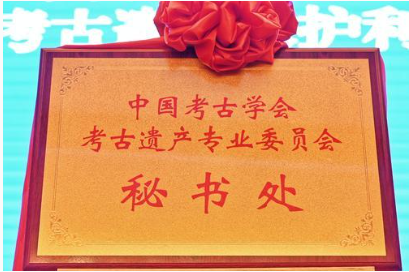 考古
护科
中国考古学会
考古遗产专业委员会
秘书处